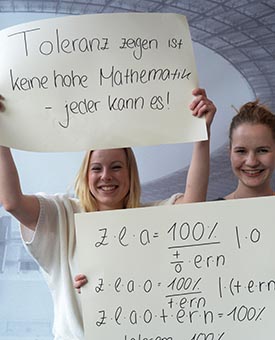 Toleranz zeigen ist
keine hohe Mathematik
- jeder kann es!
z·l·a = 100% / t/o·ern |·o
z·l·a·o = 100% / t·ern |·(t·ern
z·l·a·o·t·e·r·n = 100%
100%